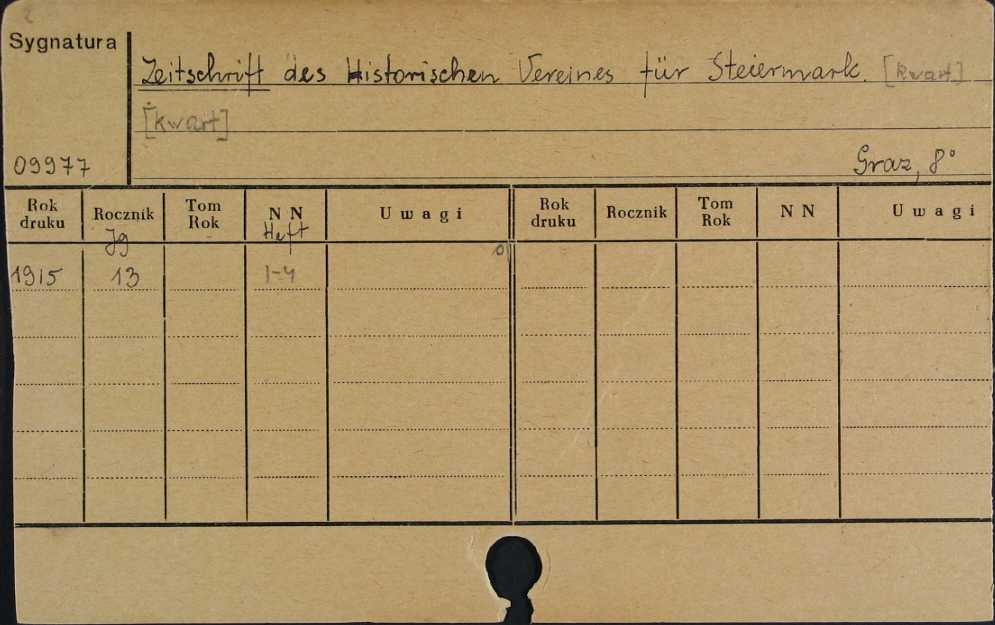 Sygnatura
Zeitschrift des Historischen Vereines für Steiermark. [kwart]
[kwart]
09977
Graz, 8°
Rok druku Rocznik Tom Rok NN Uwagi Rok druku Rocznik Tom Rok NN Uwagi
Jg Heft
1915 13 1-4